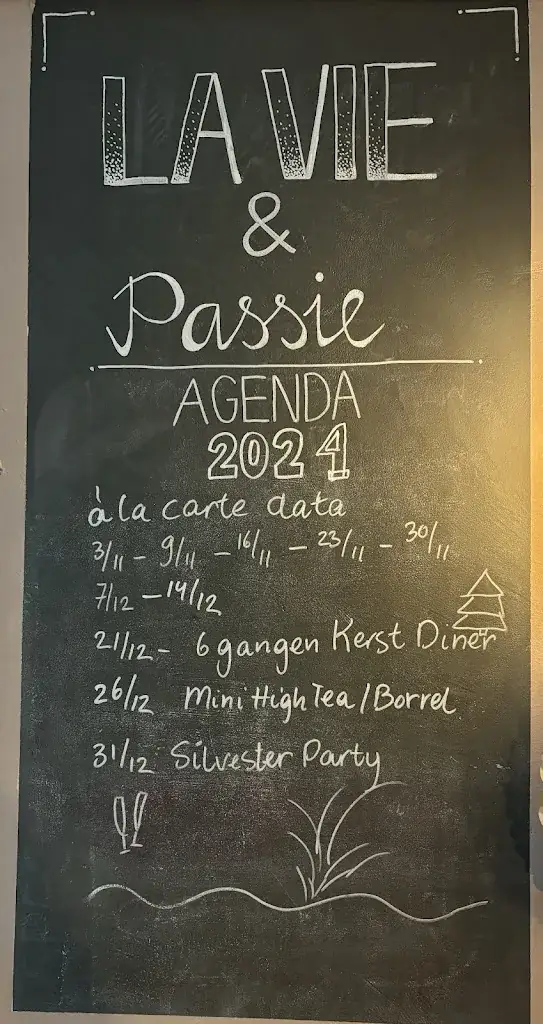 LA VIE
&
Passie
AGENDA
2024
à la carte data
3/11 - 9/11 - 16/11 - 23/11 - 30/11
7/12 - 14/12
21/12 - 6 gangen Kerst Diner
26/12 Mini High Tea / Borrel
31/12 Silvester Party